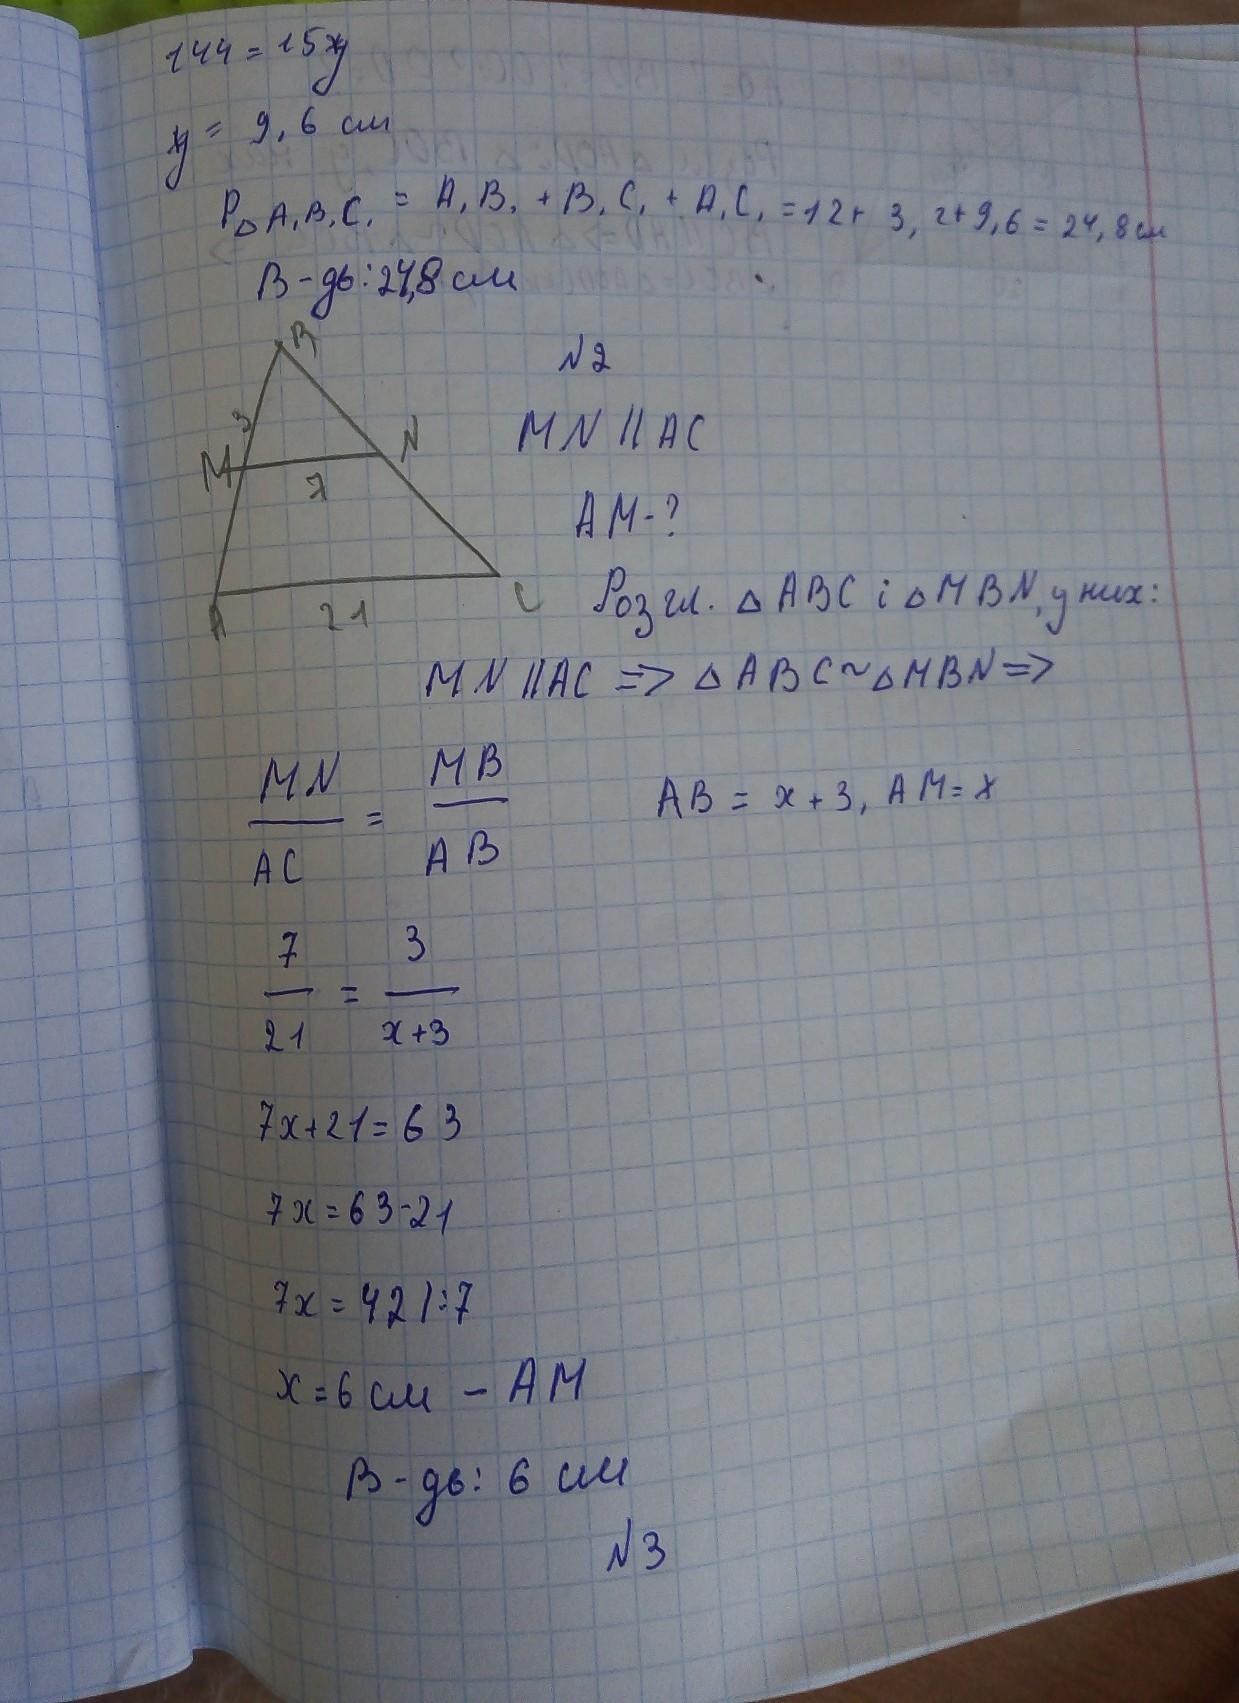 144 = 15y
y = 9,6 см
P△A₁B₁C₁ = A₁B₁ + B₁C₁ + A₁C₁ = 12 + 3,2 + 9,6 = 24,8 см
В-дь: 24,8 см
B
N2
3
N
MN || AC
M
7
AM - ?
A
21
C
Розгл. △ABC і △MBN, у них:
MN || AC => △ABC ~ △MBN =>
MN/AC = MB/AB
AB = x + 3, AM = x
7/21 = 3/x+3
7x+21=63
7x=63-21
7x=42 |:7
x=6 см - AM
В-дь: 6 см
N3